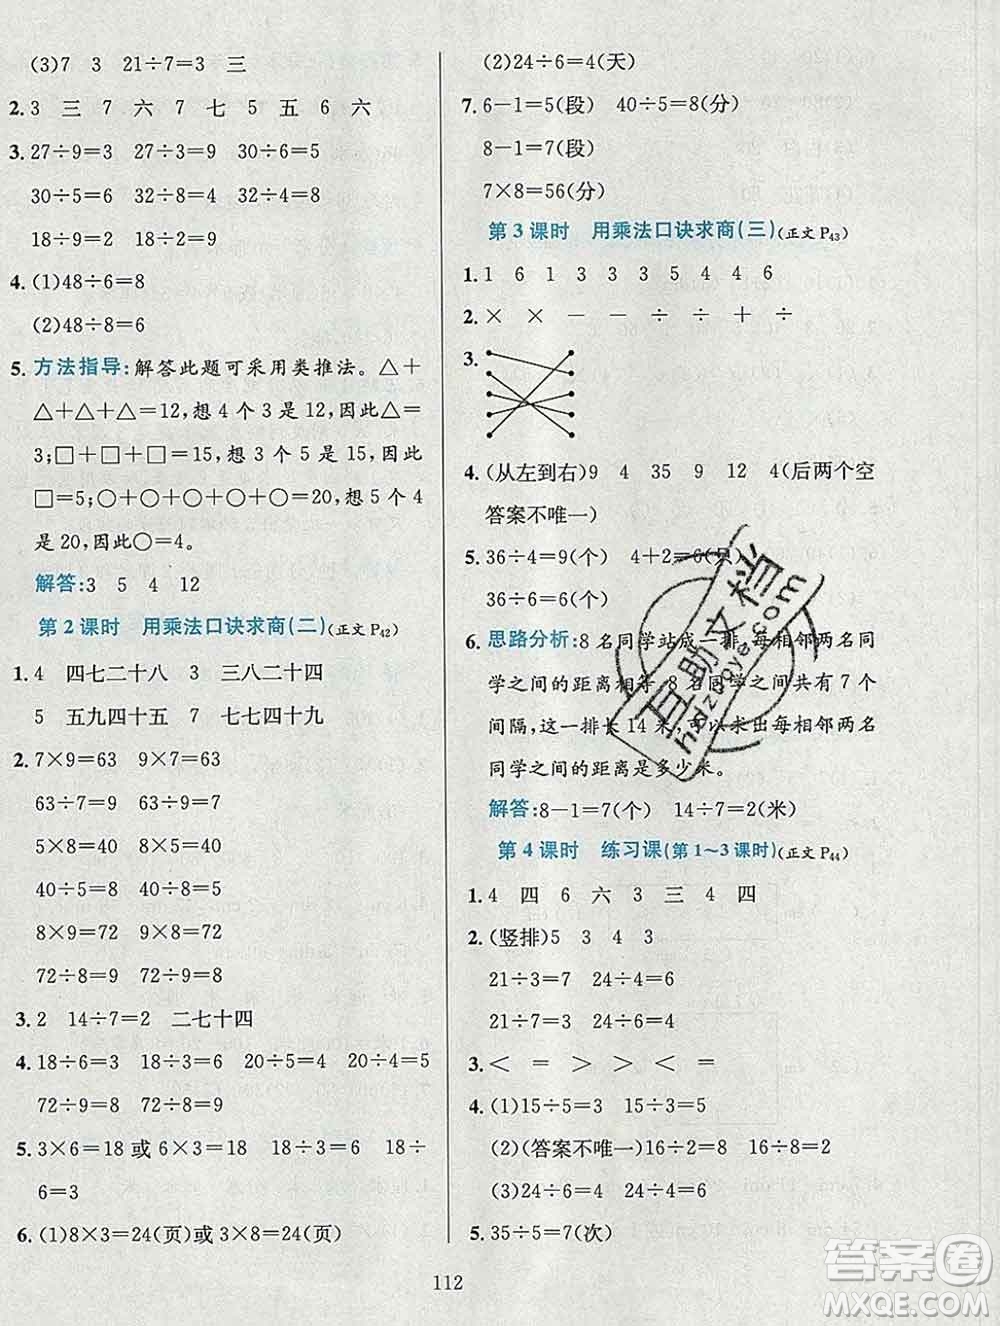 (3)7 3 21÷7=3 三
2. 3 三 7 六 7 七 5 五 6 六
3. 27÷9=3 27÷3=9 30÷6=5
30÷5=6 32÷8=4 32÷4=8
18÷9=2 18÷2=9
4. (1)48÷6=8
(2)48÷8=6
5. 方法指导:解答此题可采用类推法。△+
△+△+△=12,想4个3是12,因此△=
3;□+□+□=15,想3个5是15,因此
□=5;○+○+○+○+○=20,想5个4
是20,因此○=4。
解答:3 5 4 12
第2课时 用乘法口诀求商(二)(正文P42)
1. 4 四七二十八 3 三八二十四
5 五九四十五 7 七七四十九
2. 7×9=63 9×7=63
63÷7=9 63÷9=7
5×8=40 8×5=40
40÷5=8 40÷8=5
8×9=72 9×8=72
72÷8=9 72÷9=8
3. 2 14÷7=2 二七十四
4. 18÷6=3 18÷3=6 20÷5=4 20÷4=5
72÷9=8 72÷8=9
5. 3×6=18或6×3=18 18÷3=6 18÷
6=3
6. (1)8×3=24(页)或3×8=24(页)
(2)24÷6=4(天)
7. 6-1=5(段) 40÷5=8(分)
8-1=7(段)
7×8=56(分)
第3课时 用乘法口诀求商(三)(正文P43)
1. 1 6 1 3 3 3 5 4 4 6
2. × × - - ÷ ÷ + ÷
3.
4. (从左到右)9 4 35 9 12 4(后两个空
答案不唯一)
5. 36÷4=9(个) 4+2=6(只)
36÷6=6(个)
6. 思路分析:8名同学站成一排,每相邻两名同
学之间的距离相等,8名同学之间共有7个
间隔,这一排长14米,可以求出每相邻两名
同学之间的距离是多少米。
解答:8-1=7(个) 14÷7=2(米)
第4课时 练习课(第1~3课时)(正文P44)
1. 4 四 6 六 3 三 4 四
2. (竖排)5 3 4 3
21÷3=7 24÷4=6
21÷7=3 24÷6=4
3. < = > > < =
4. (1)15÷5=3 15÷3=5
(2)(答案不唯一)16÷2=8 16÷8=2
(3)24÷4=6 24÷6=4
5. 35÷5=7(次)
112
互助文档
hdzuoye.com
答案圈
MXQE.COM